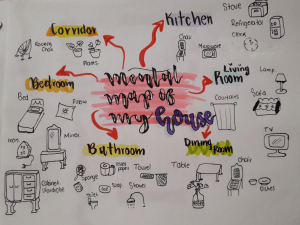 Corridor
Kitchen
Stove
Refrigerator
Clock
Chair
Microwave
Rocking
Chair
Plants
mental
map of
my house
Living
Room
Lamp
Bedroom
Bed
Pillow
Sofa
Mirror
TV
Bathroom
Dining
Room
Table
chair
Towel
Sponge
Soap
Shower
toilet
Cabinet
Wardrobe